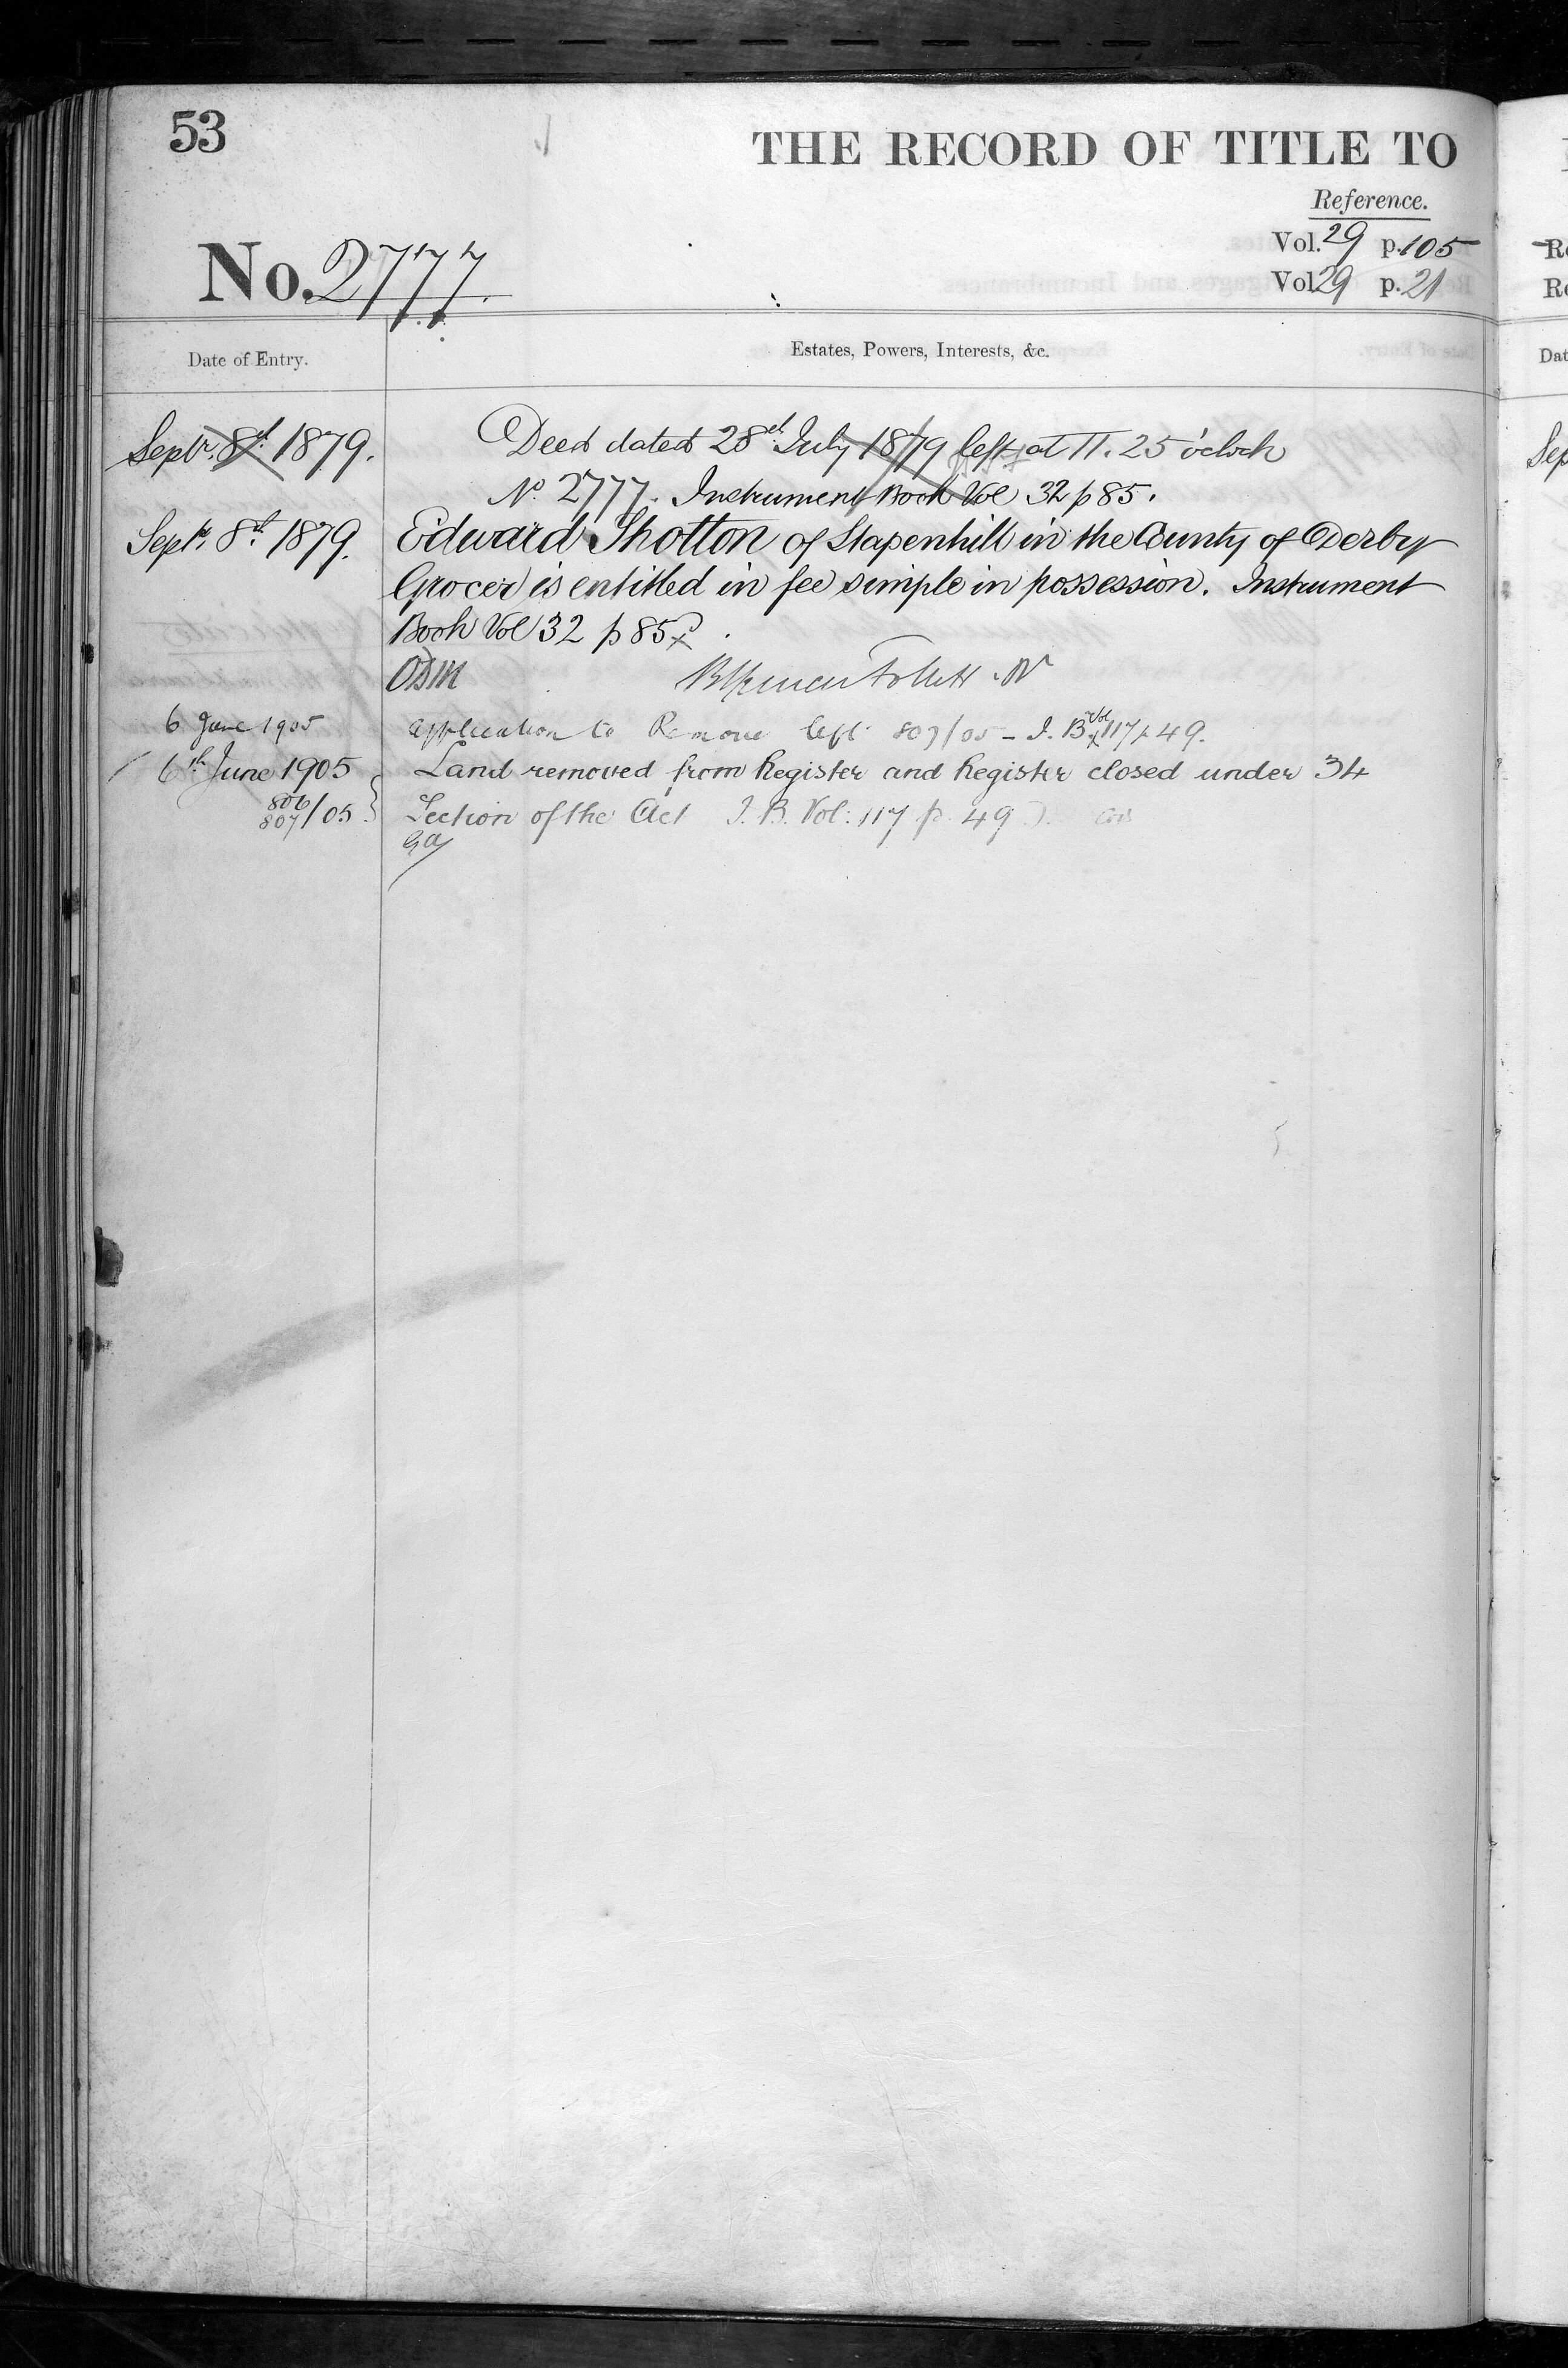 53
THE RECORD OF TITLE TO
Reference.
Vol. 29 p. 105
No. 2777.
Vol 29 p. 21
Date of Entry.
Estates, Powers, Interests, &c.
Septr. 8th 1879.
Deed dated 28th July 1879 left at 11.25 o'clock
No. 2777. Instrument Book Vol 32 p 85.
Septr. 8th 1879.
Edward Shotton of Stapenhill in the County of Derby
Grocer is entitled in fee simple in possession. Instrument
Book Vol 32 p 85
ODM
6 June 1905
Application to Remove left 807/05 - I.B. Vol 117 p 49.
6th June 1905
Land removed from Register and Register closed under 34
806
807/05
Section of the Act I.B. Vol: 117 p. 49